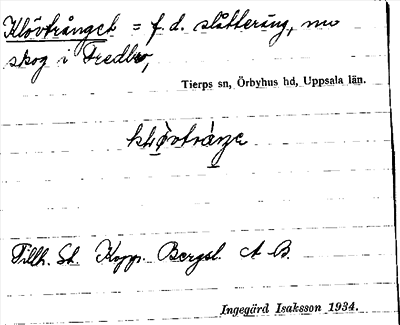 Klövtrånget = f.d. slåtteräng, nu
skog i Fredbo,
Tierps sn, Örbyhus hd, Uppsala län.
Tillh. St. Kopp. Bergsl. A B.
Ingegärd Isaksson 1934.